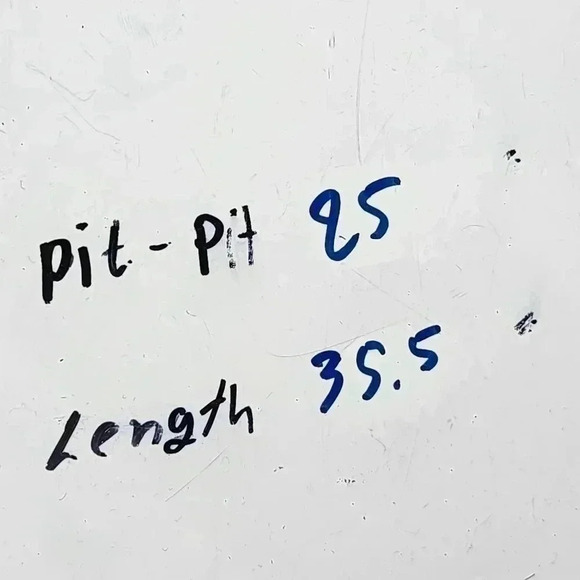 Pit - Pit 25
Length 35.5